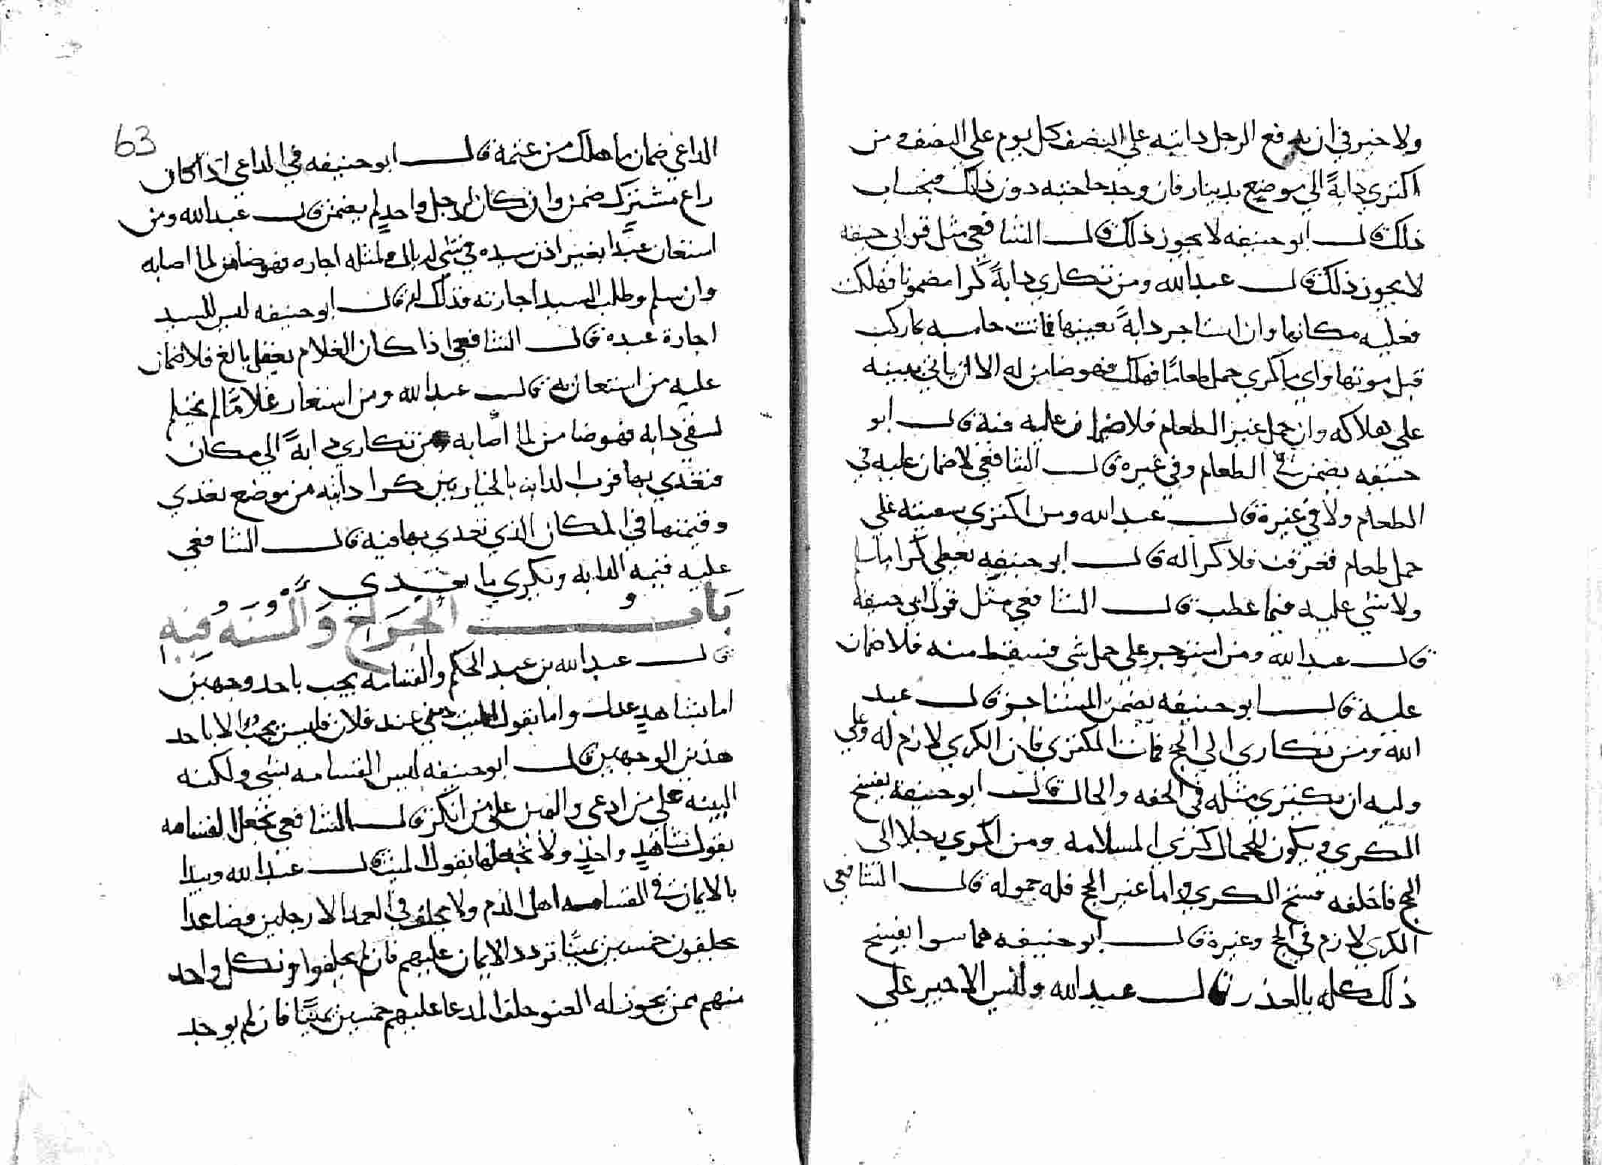 ولا خير في ان يدفع الرجل دابته على النصف كل يوم على النصف ومن
اكترى دابة الى موضع بدينار فان وجد حاجته دون ذلك فبحساب
ذلك قال ابو حنيفه لا يجوز ذلك قال الشافعي مثل قول ابي حنيفه
لا يجوز ذلك قال عبد الله ومن تكارى دابة كرا مضمونا فهلكت
فعليه مكانها وان استاجر دابة بعينها فماتت حاسبه بما ركب
قبل موتها واي ما كري حمل طعاما فهلك فهو ضامن له الا ان ياتي ببينه
على هلاكه وان حمل غير الطعام فلا ضمان عليه فيه قال ابو
حنيفه يضمن في الطعام وفي غيره قال الشافعي لا ضمان عليه في
الطعام ولا في غيره قال عبد الله ومن اكترى سفينه على
حمل طعام فغرقت فلا كرا له قال ابو حنيفه يعطى كرا ما
ولا شي عليه فيما عطب قال الشافعي مثل قول ابي حنيفه
قال عبد الله ومن استوجر على حمل شي فسقط منه فلا ضمان
عليه قال ابو حنيفه يضمن المستاجر قال عبد
الله ومن تكارى الى الحج فمات المكتري فان الكري لازم له وعلى
وليه ان يكتري مثله في الخفه والحال قال ابو حنيفه يفسخ
الكرى ويكون للجمال كرى السلامه ومن اكرى رجلا الى
الحج فاخلفه فسخ الكرى واما غير الحج فله حموله قال الشافعي
الكرى لازم في الحج وغيره قال ابو حنيفه هما سوا يفسخ
ذلك كله بالعذر قال عبد الله وليس الاجير على
63
الراعي ضمان ما هلك من غنمه قال ابو حنيفه في الراعي اذا كان
راع مشترك ضمن وان كان لرجل واحد لم يضمن قال عبد الله ومن
استعان عبدا بغير اذن سيده في شي له بال ولمثله اجاره فهو ضامن لما اصابه
وان سلم وطلب السيد اجارته فذلك له قال ابو حنيفه ليس للسيد
اجارة عبده قال الشافعي اذا كان الغلام يعقل بالغ فلا ضمان
عليه من استعان به قال عبد الله ومن استعار غلاما لم يحتلم
لسقي دابه فهو ضامن لما اصابه ومن تكارى دابة الى مكان
فتعدى بها فرب الدابه بالخيار بين كرا دابته من موضع تعدى
وقيمتها في المكان الذي تعدى بها فيه قال الشافعي
عليه قيمه الدابه وبكرى ما تعدى
باب الجراح والسنه فيه
قال عبد الله بن عبد الحكم والقسامه تجب باحد وجهين
اما بشاهد عدل واما بقول الميت دمي عند فلان فليس تجب الا باحد
هذين الوجهين قال ابو حنيفه ليس القسامه بشي ولكنه
البينه على من ادعى واليمين على من انكر قال الشافعي تجعل القسامه
بقول شاهد واحد ولا تجعلها بقول الميت قال عبد الله ويبدا
بالايمان في القسامه اهل الدم ولا يحلف في العمد الا رجلين فصاعدا
يحلفون خمسين يمينا تردد الايمان عليهم فان لم يحلفوا او نكل واحد
منهم ممن يجوز له العفو حلف المدعا عليهم خمسين يمينا فان لم يوجد